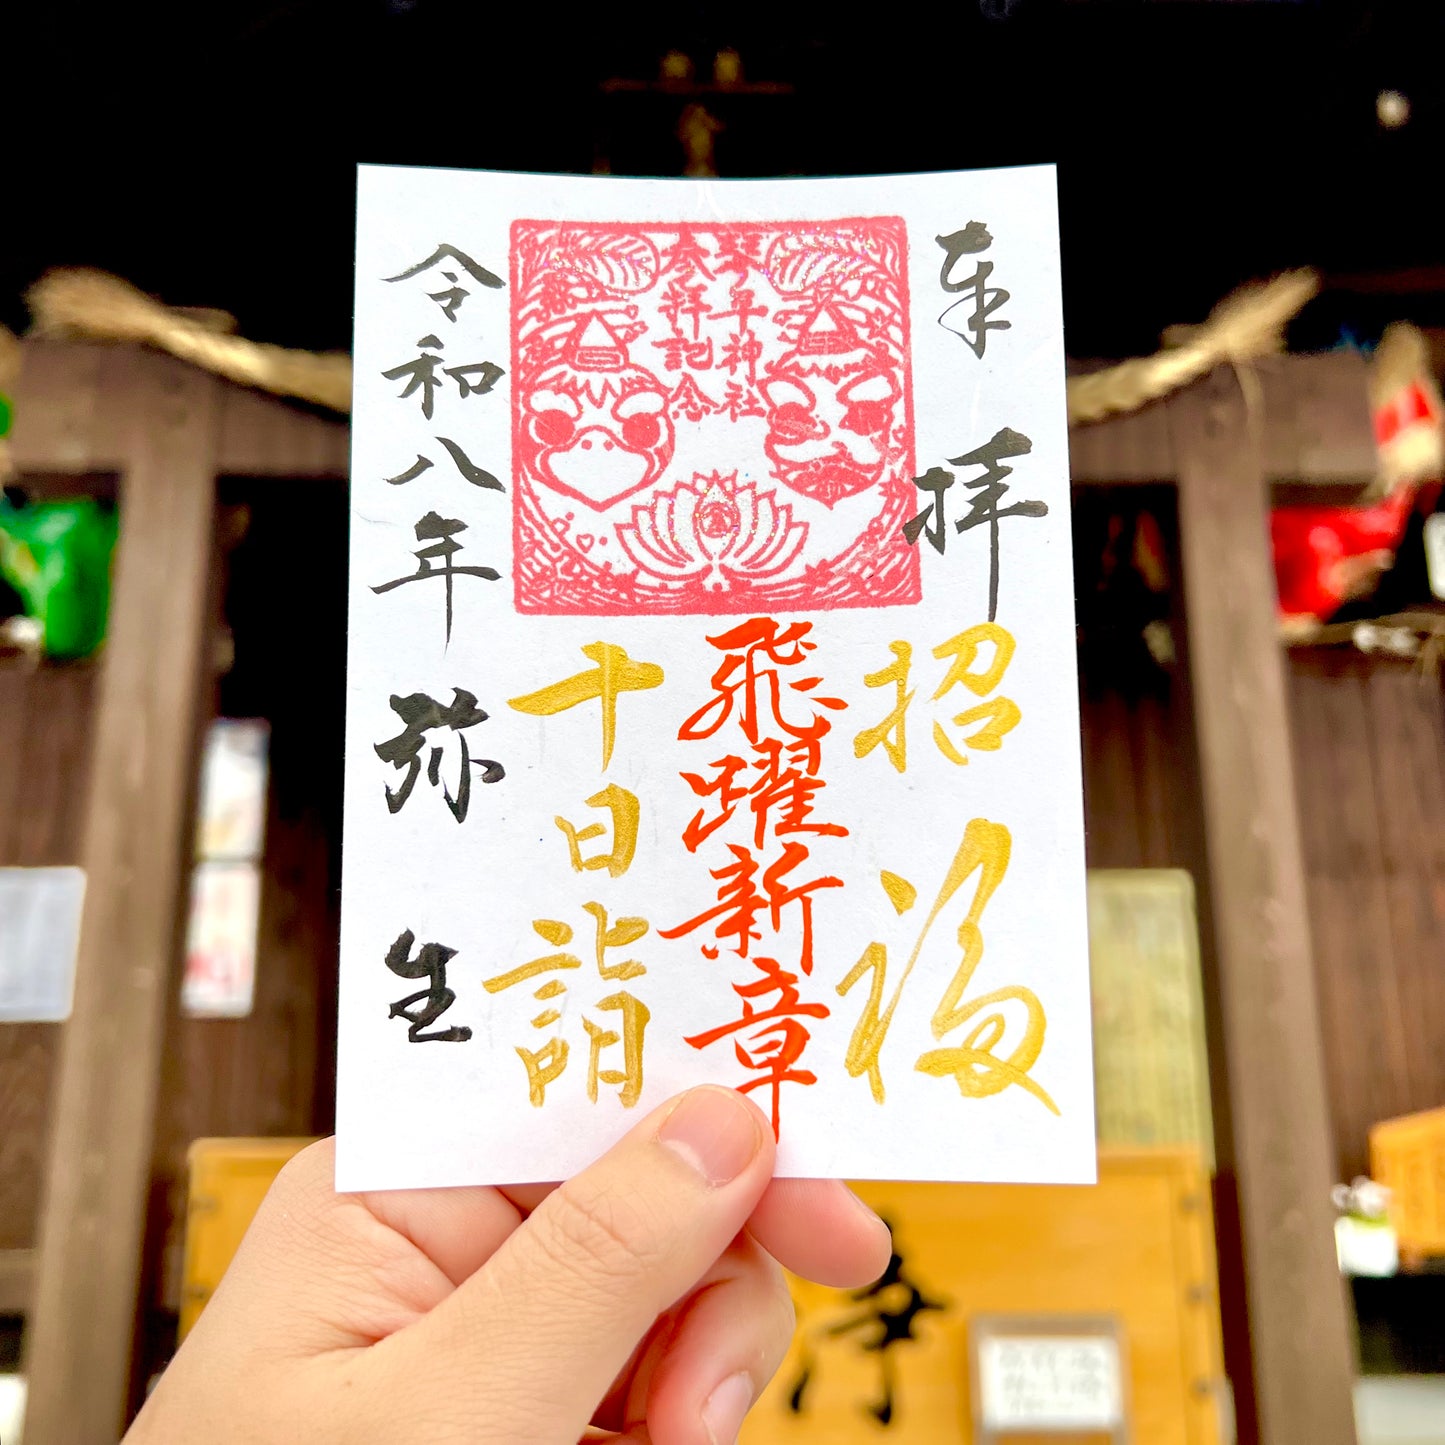 奉拝
参拝記念
招福
飛躍新章
十日詣
令和八年弥生
浄